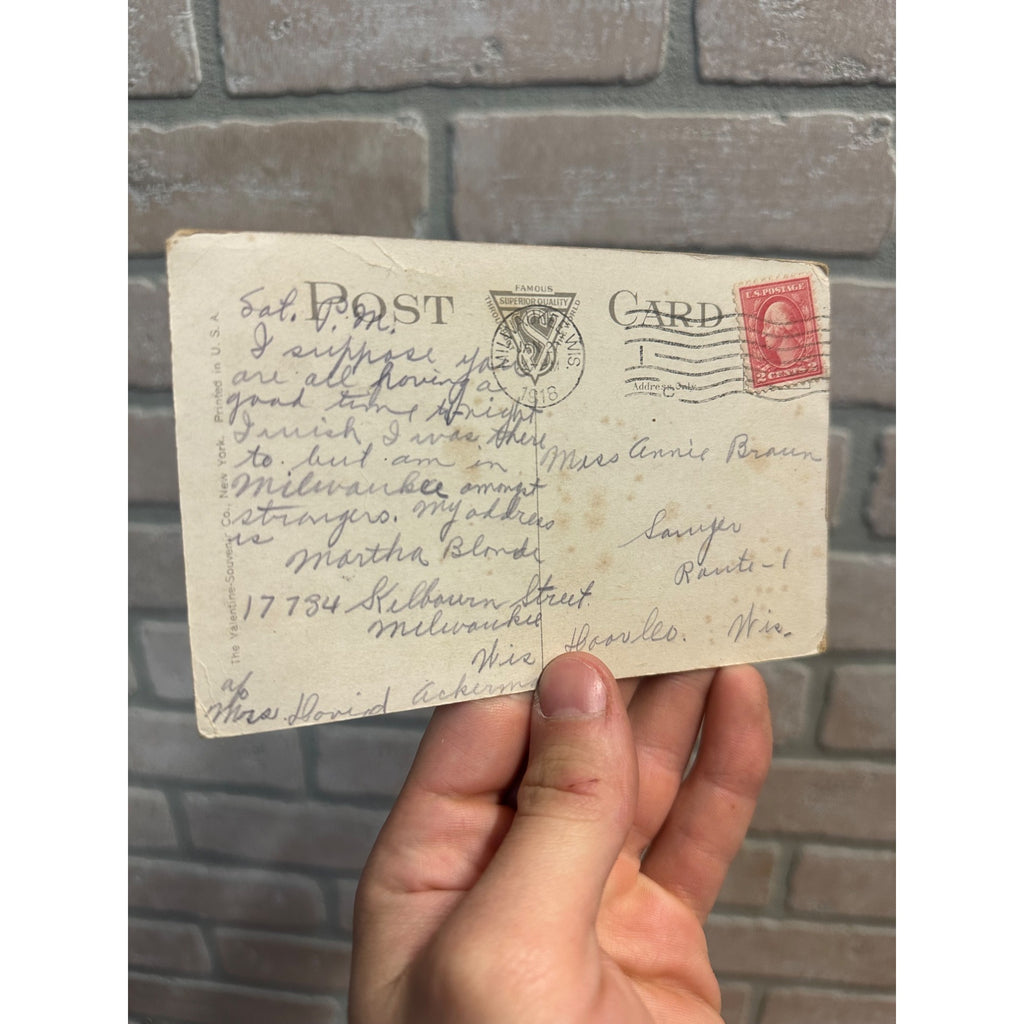 POST CARD
FAMOUS
THROUGHOUT THE WORLD
SUPERIOR QUALITY
MILWAUKEE, WIS.
1918
U.S. POSTAGE
2 CENTS 2
Address Only
The Valentine-Souvenir Co., New York. Printed in U. S. A.
Sat. P.M.
I suppose you
are all having a
good time tonight
I wish I was there
to. but am in
Milwaukee amongst
strangers. My address
is
Martha Blonde
17784 Kilbourn Street.
Milwaukee
Wis
Mrs. David Ackerm
Miss Annie Braun
Sawyer
Route-1
Door Co. Wis.